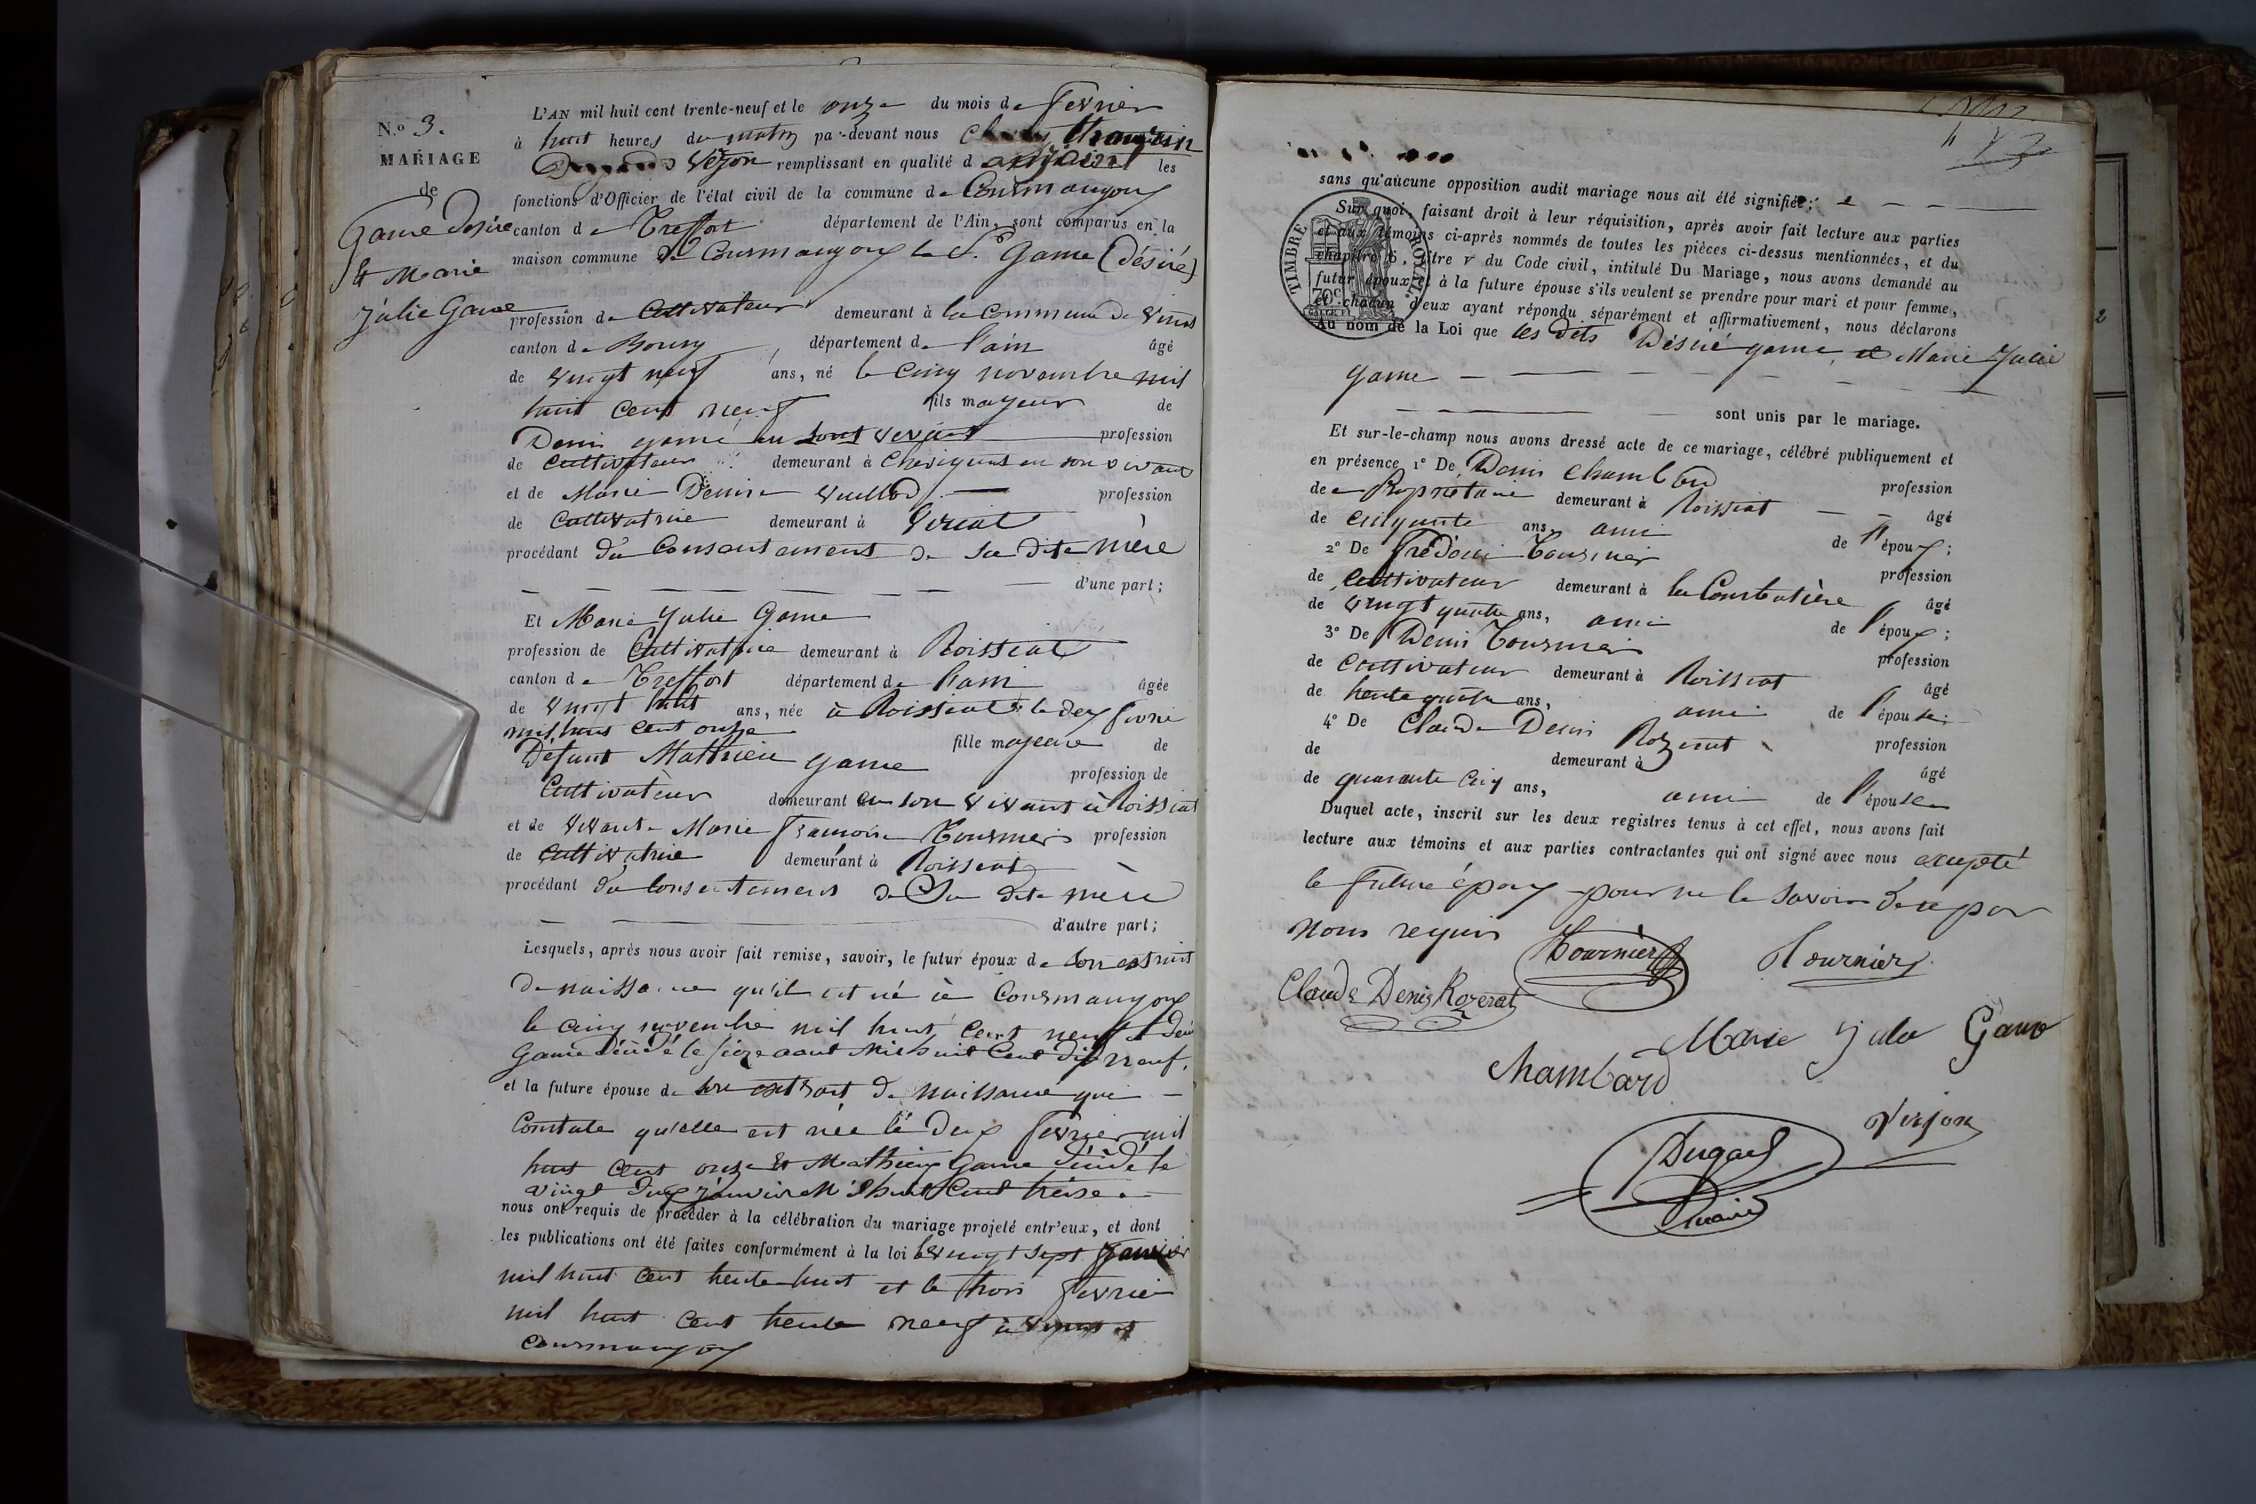 N.o 3.
MARIAGE
de
Game Désiré
Et Marie
Julie Game
L'AN mil huit cent trente-neuf et le onze du mois de fevrier
à huit heures du matin par-devant nous
Vezon remplissant en qualité d'adjoint les
fonctions d'Officier de l'état civil de la commune de Courmangoux
canton de Treffort département de l'Ain, sont comparus en la
maison commune de Courmangoux le S.r Game (Désiré)
profession de Cultivateur demeurant à la Commune de
canton de Bourg département de l'ain âgé
de vingt neuf ans, né le cinq novembre mil
huit cent neuf fils mayeur de
Denis game en son vivant profession
de Cultivateur demeurant à en son vivant
et de Marie Denise Vuillod profession
de Cultivatrice demeurant à Viriat
procédant du Consentement de sa dite mère
d'une part;
Et Marie Julie Game
profession de Cultivatrice demeurant à Roissiat
canton de Treffort département de l'ain âgée
de vingt huit ans, née à Roissiat le deux fevrie
mil huit cent onze
fille mayeure de
Défunt Mathieu game profession de
Cultivateur demeurant en son vivant à Roissiat
et de vivante Marie françoise Tournier profession
de Cultivatrice demeurant à Roissiat
procédant du Consentement de Sa dite mère
d'autre part;
Lesquels, après nous avoir fait remise, savoir, le futur époux de son extrait
de naissance qu'il est né à Courmangoux
le cinq novembre mil huit cent neuf et Denis
Game Décédé le seize aout Mil huit Cent dix neuf.
et la future épouse de son extrait de naissance qui
Constate qu'elle est née le deux fevrier mil
huit cent onze et Mathieu Game Décédé le
vingt deux janvier Mil huit Cent treise.
nous ont requis de procéder à la célébration du mariage projeté entr'eux, et dont
les publications ont été faites conformément à la loi le vingt sept janvier
mil huit cent trente huit et le trois fevrier
mil huit cent trente neuf à
Courmangoux
sans qu'aucune opposition audit mariage nous ait été signifiée;
TIMBRE ROYAL
70c
Sur quoi, faisant droit à leur réquisition, après avoir fait lecture aux parties
et aux témoins ci-après nommés de toutes les pièces ci-dessus mentionnées, et du
chapitre 6, titre V du Code civil, intitulé Du Mariage, nous avons demandé au
futur époux et à la future épouse s'ils veulent se prendre pour mari et pour femme,
et chacun d'eux ayant répondu séparément et affirmativement, nous déclarons
Au nom de la Loi que les dits Désiré game et Marie Julie
game
sont unis par le mariage.
Et sur-le-champ nous avons dressé acte de ce mariage, célébré publiquement et
en présence 1° De Denis Chambard profession
de Propriétaire demeurant à Roissiat âgé
de cinquante ans, ami de l'époux;
2° De Frédéric Tournier profession
de Cultivateur demeurant à la Courbatière âgé
de vingt quatre ans, ami de l'époux;
3° De Denis Tournier profession
de Cultivateur demeurant à Roissiat âgé
de trente quatre ans, ami de l'épouse;
4° De Claude Denis Rozerat profession
de demeurant à âgé
de quarante cinq ans, ami de l'épouse
Duquel acte, inscrit sur les deux registres tenus à cet effet, nous avons fait
lecture aux témoins et aux parties contractantes qui ont signé avec nous excepté
le future époux pour ne le savoir de ce par
nous requis
Tournier
Tournier
Claude Denis Rozerat
Marie Julie Game
Chambard
Vezon
Dugad
Maire